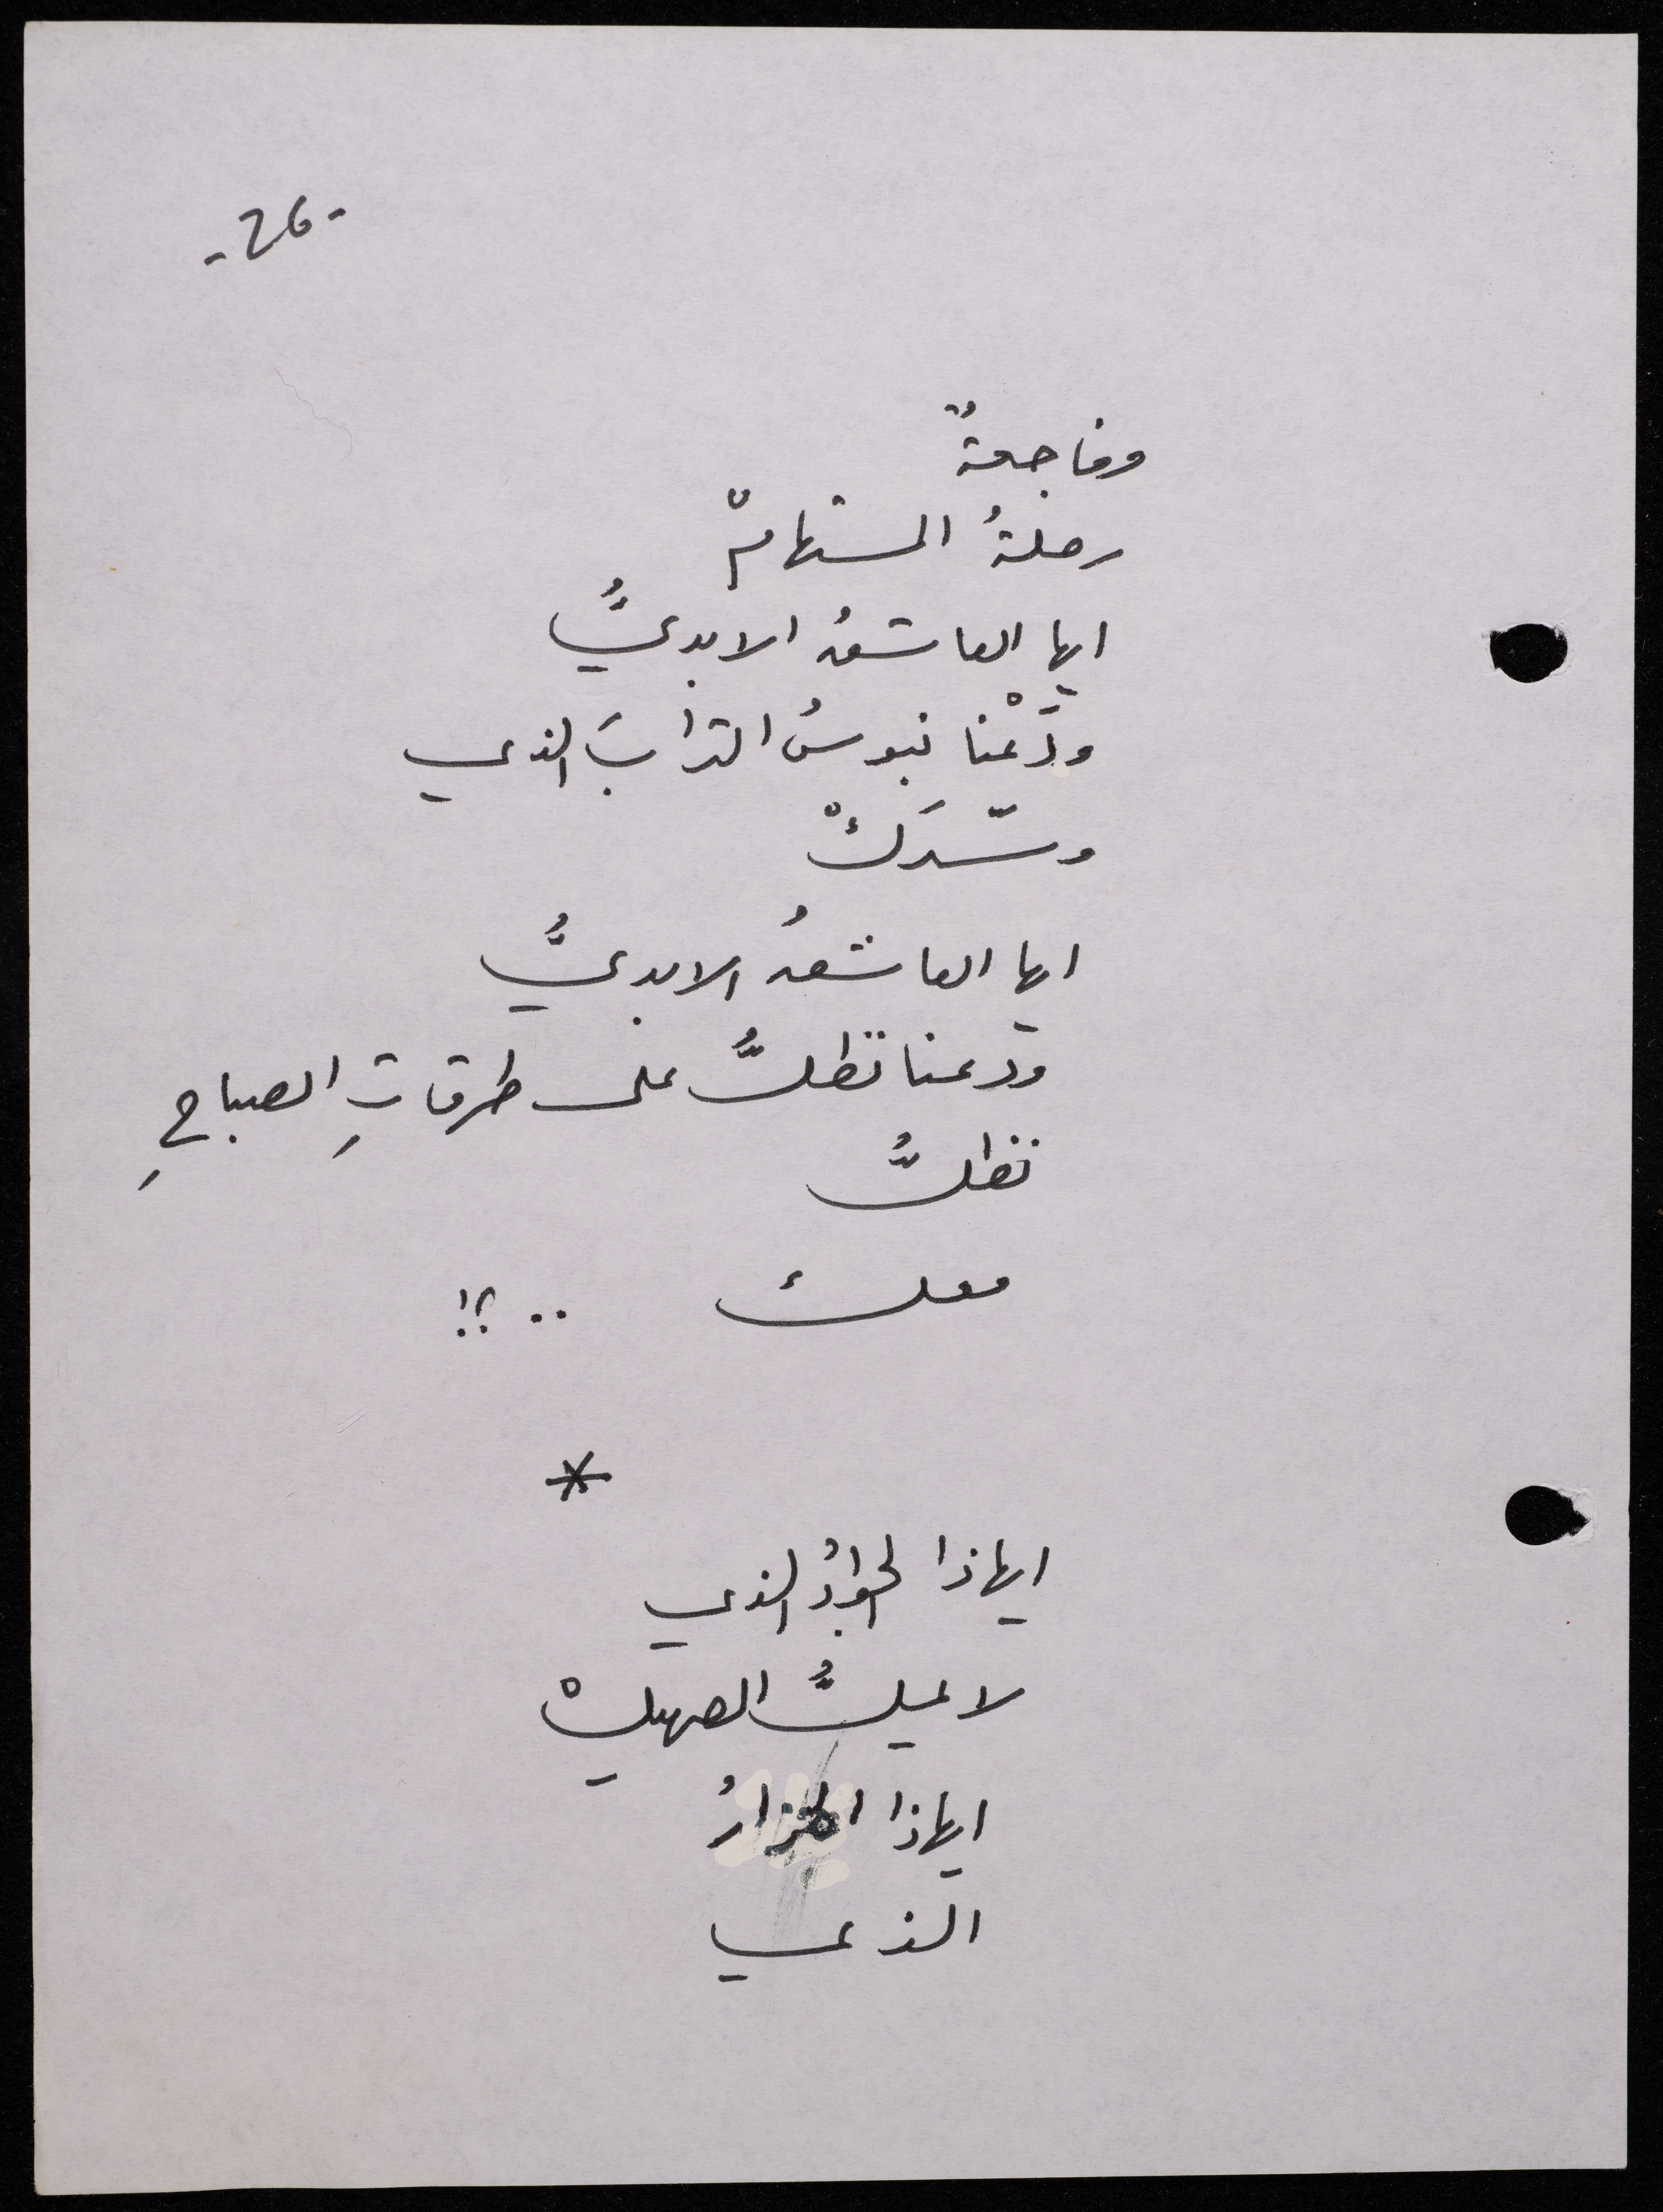 -26-
وفاجعةٌ
رحلةُ المستهامْ
ايها العاشقُ الابديُّ
ودَعْنا نبوسُ الترابَ الذي
وسّدَكْ
ايها العاشقُ الابديُّ
ودعنا نطلُّ على طرقاتِ الصباحِ
نظلُّ
معك .. ؟!
*
ايهاذا الجوادُ الذي
لا يملُّ الصهيلْ
ايهاذا الهزارُ
الذي